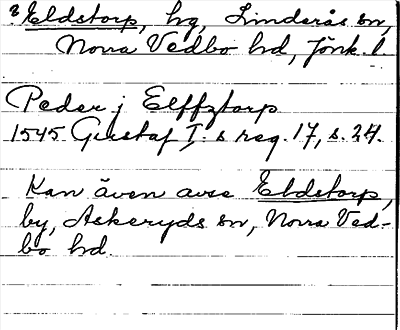 Eldstorp, hg, Linderås sn,
Norra Vedbo hd, Jönk. l
Peder j Elffztorp
1545 Gustaf I:s reg. 17, s. 24.
Kan även avse Eldstorp,
by, Askeryds sn, Norra Ved-
bo hd.